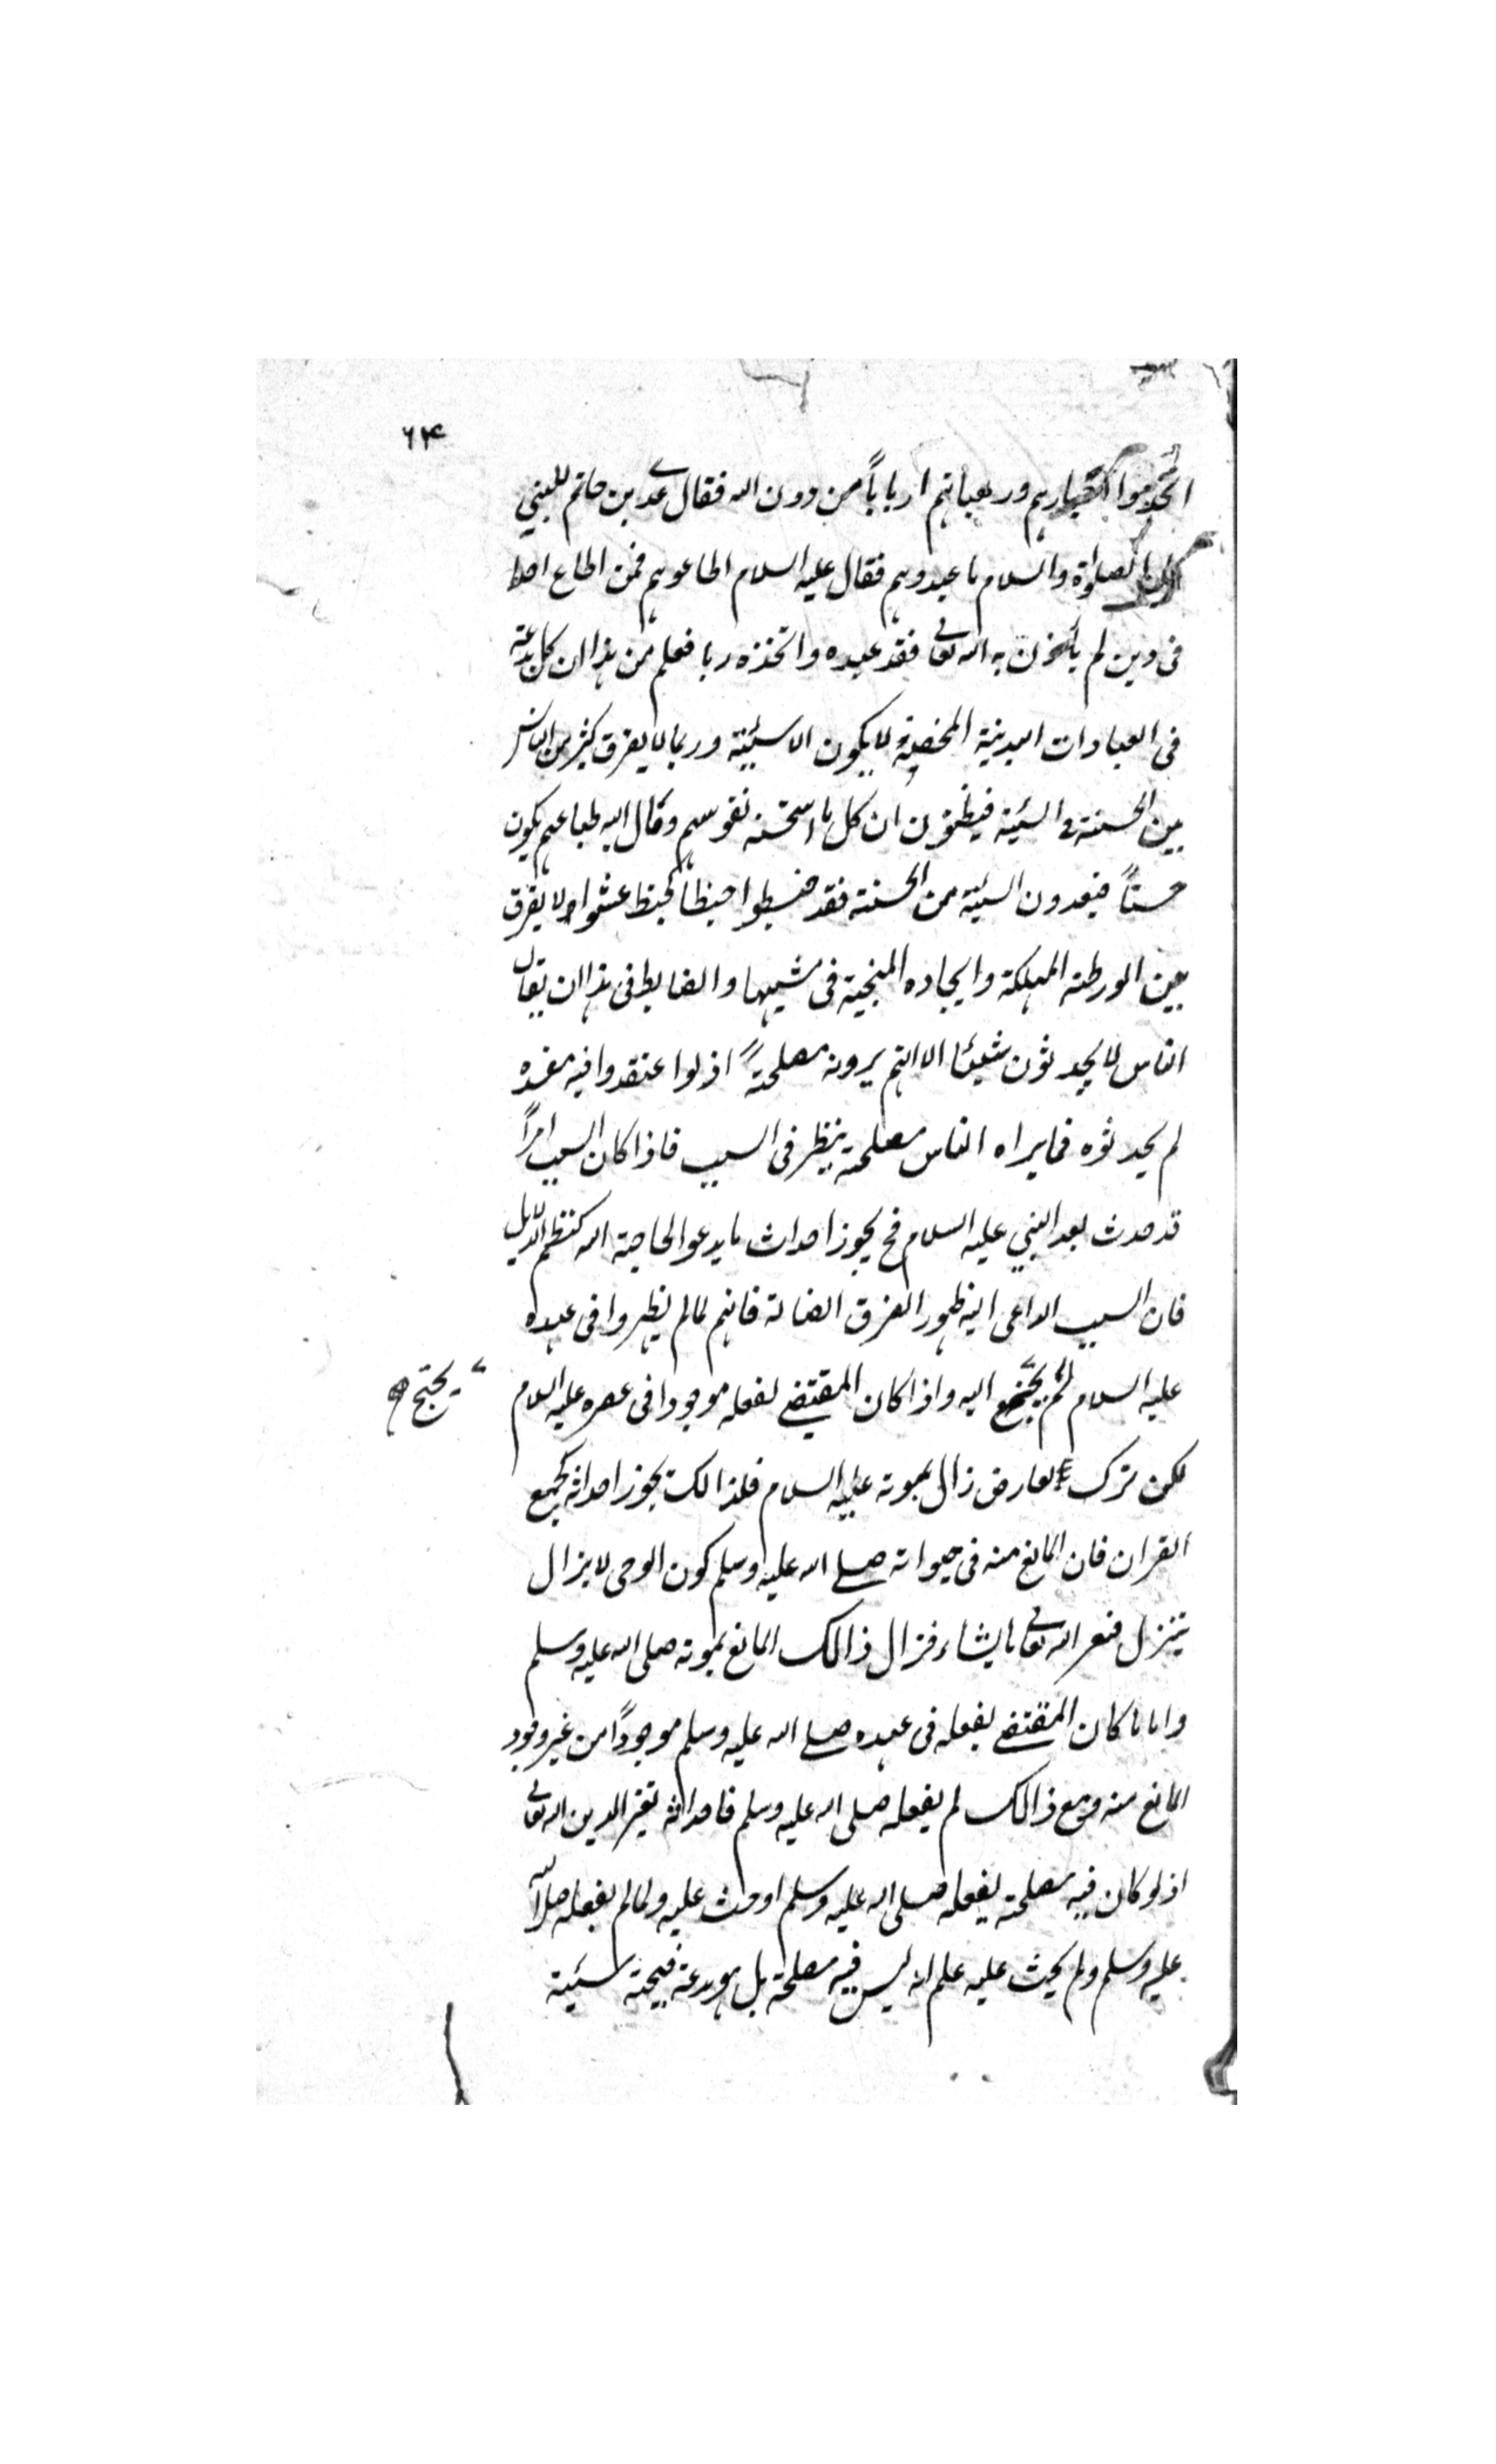 ۶۴
اتخذوا احبارهم ورهبانهم اربابا من دون الله فقال عدے بن حاتم للنبی
عليه الصلواة والسلام ما عبدوهم فقال عليه السلام اطاعوهم فمن اطاع احدا
فی دين لم يأذن به الله تعالی فقد عبده واتخذه ربا فعلم من هذا ان كل بدعة
فی العبادات البدنية المخضة لا يكون الا سيئة وربما لا يفرق كثير من الناس
بين الحسنة و السيئة فيظنون ان كل ما استحسنه نفوسهم ومال اليه طباعهم يكون
حسناً فيعدون السيئة من الحسنة فقد خبطوا خبطاً كخبط عشواء لا يفرق
بين الورطة المهلكة والجاده المنجية فی مشيها والضابط فی هذا ان يقال
الناس لا يحدثون شيئا الا انهم يرونه مصلحةً اذ لو اعتقدوا فيه مفسده
لم يحدثوه فما يراه الناس مصلحة ينظر فی السبب فاذا كان السبب امراً
قد حدث بعد النبی عليه السلام فح يجوز احداث ما يدعو الحاجة اليه كنظم الدلايل
فان السبب الداعی اليه ظهور الفرق الضالة فانهم لما لم يظهروا فی عهده
عليه السلام لم يحتج اليه واذا كان المقتضے لفعله موجودا فی عصره عليه السلام
يحتج
لكن ترك لعارض زال بموته عليه السلام فلذالك يجوز احداثه كجمع
القران فان المانع منه فی حيواته صلے الله عليه وسلم كون الوحی لا يزال
يتنزل فيغير الله تعالی ما يشاء فزال ذالك المانع بموته صلی الله عليه وسلم
واما ما كان المقتضے لفعله فی عهده صلے الله عليه وسلم موجوداً من غير وجود
المانع منه ومع ذالك لم يفعله صلی الله عليه وسلم فاحداثه تغير الدين الله تعالی
اذ لو كان فيه مصلحة لفعله صلی الله عليه وسلم او حث عليه ولما لم يفعله صلی الله
عليه وسلم ولم يحث عليه علم انه ليس فيه مصلحة بل هو بدعة قبيحة سيئة